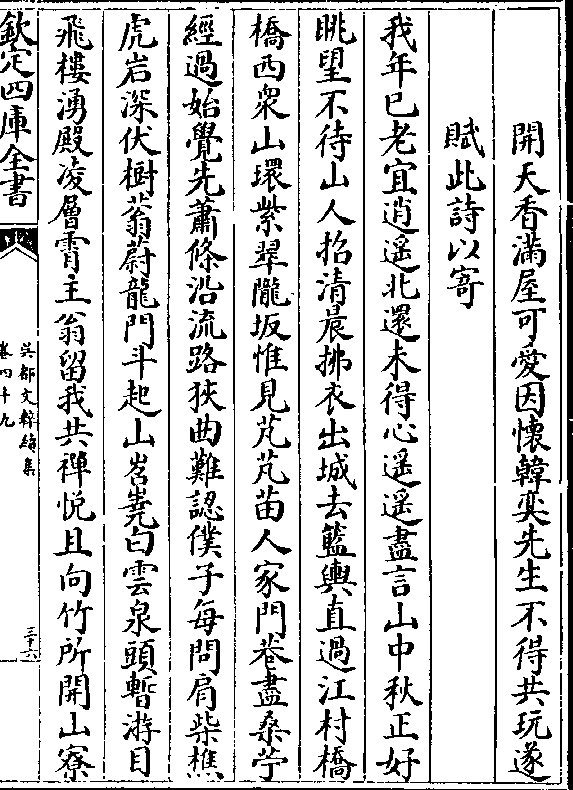 開天香滿屋可愛因懷韓奕先生不得共玩遂
賦此詩以寄
我年已老宜逍遥北還未得心遥遥盡言山中秋正好
眺望不待山人招清晨拂衣出城去籃輿直過江村橋
橋西衆山環紫翠隴坂惟見芃芃苗人家門巷盡桑苧
經過始覺先蕭條沿流路狹曲難認僕子每問肩柴樵
虎岩深伏樹蓊蔚龍門斗起山岧嶤白雲泉頭暫游目
飛樓湧殿凌層霄主翁留我共禪悅且向竹所開山寮
欽定四庫全書
吳都文粹續集
卷四十九
三十六